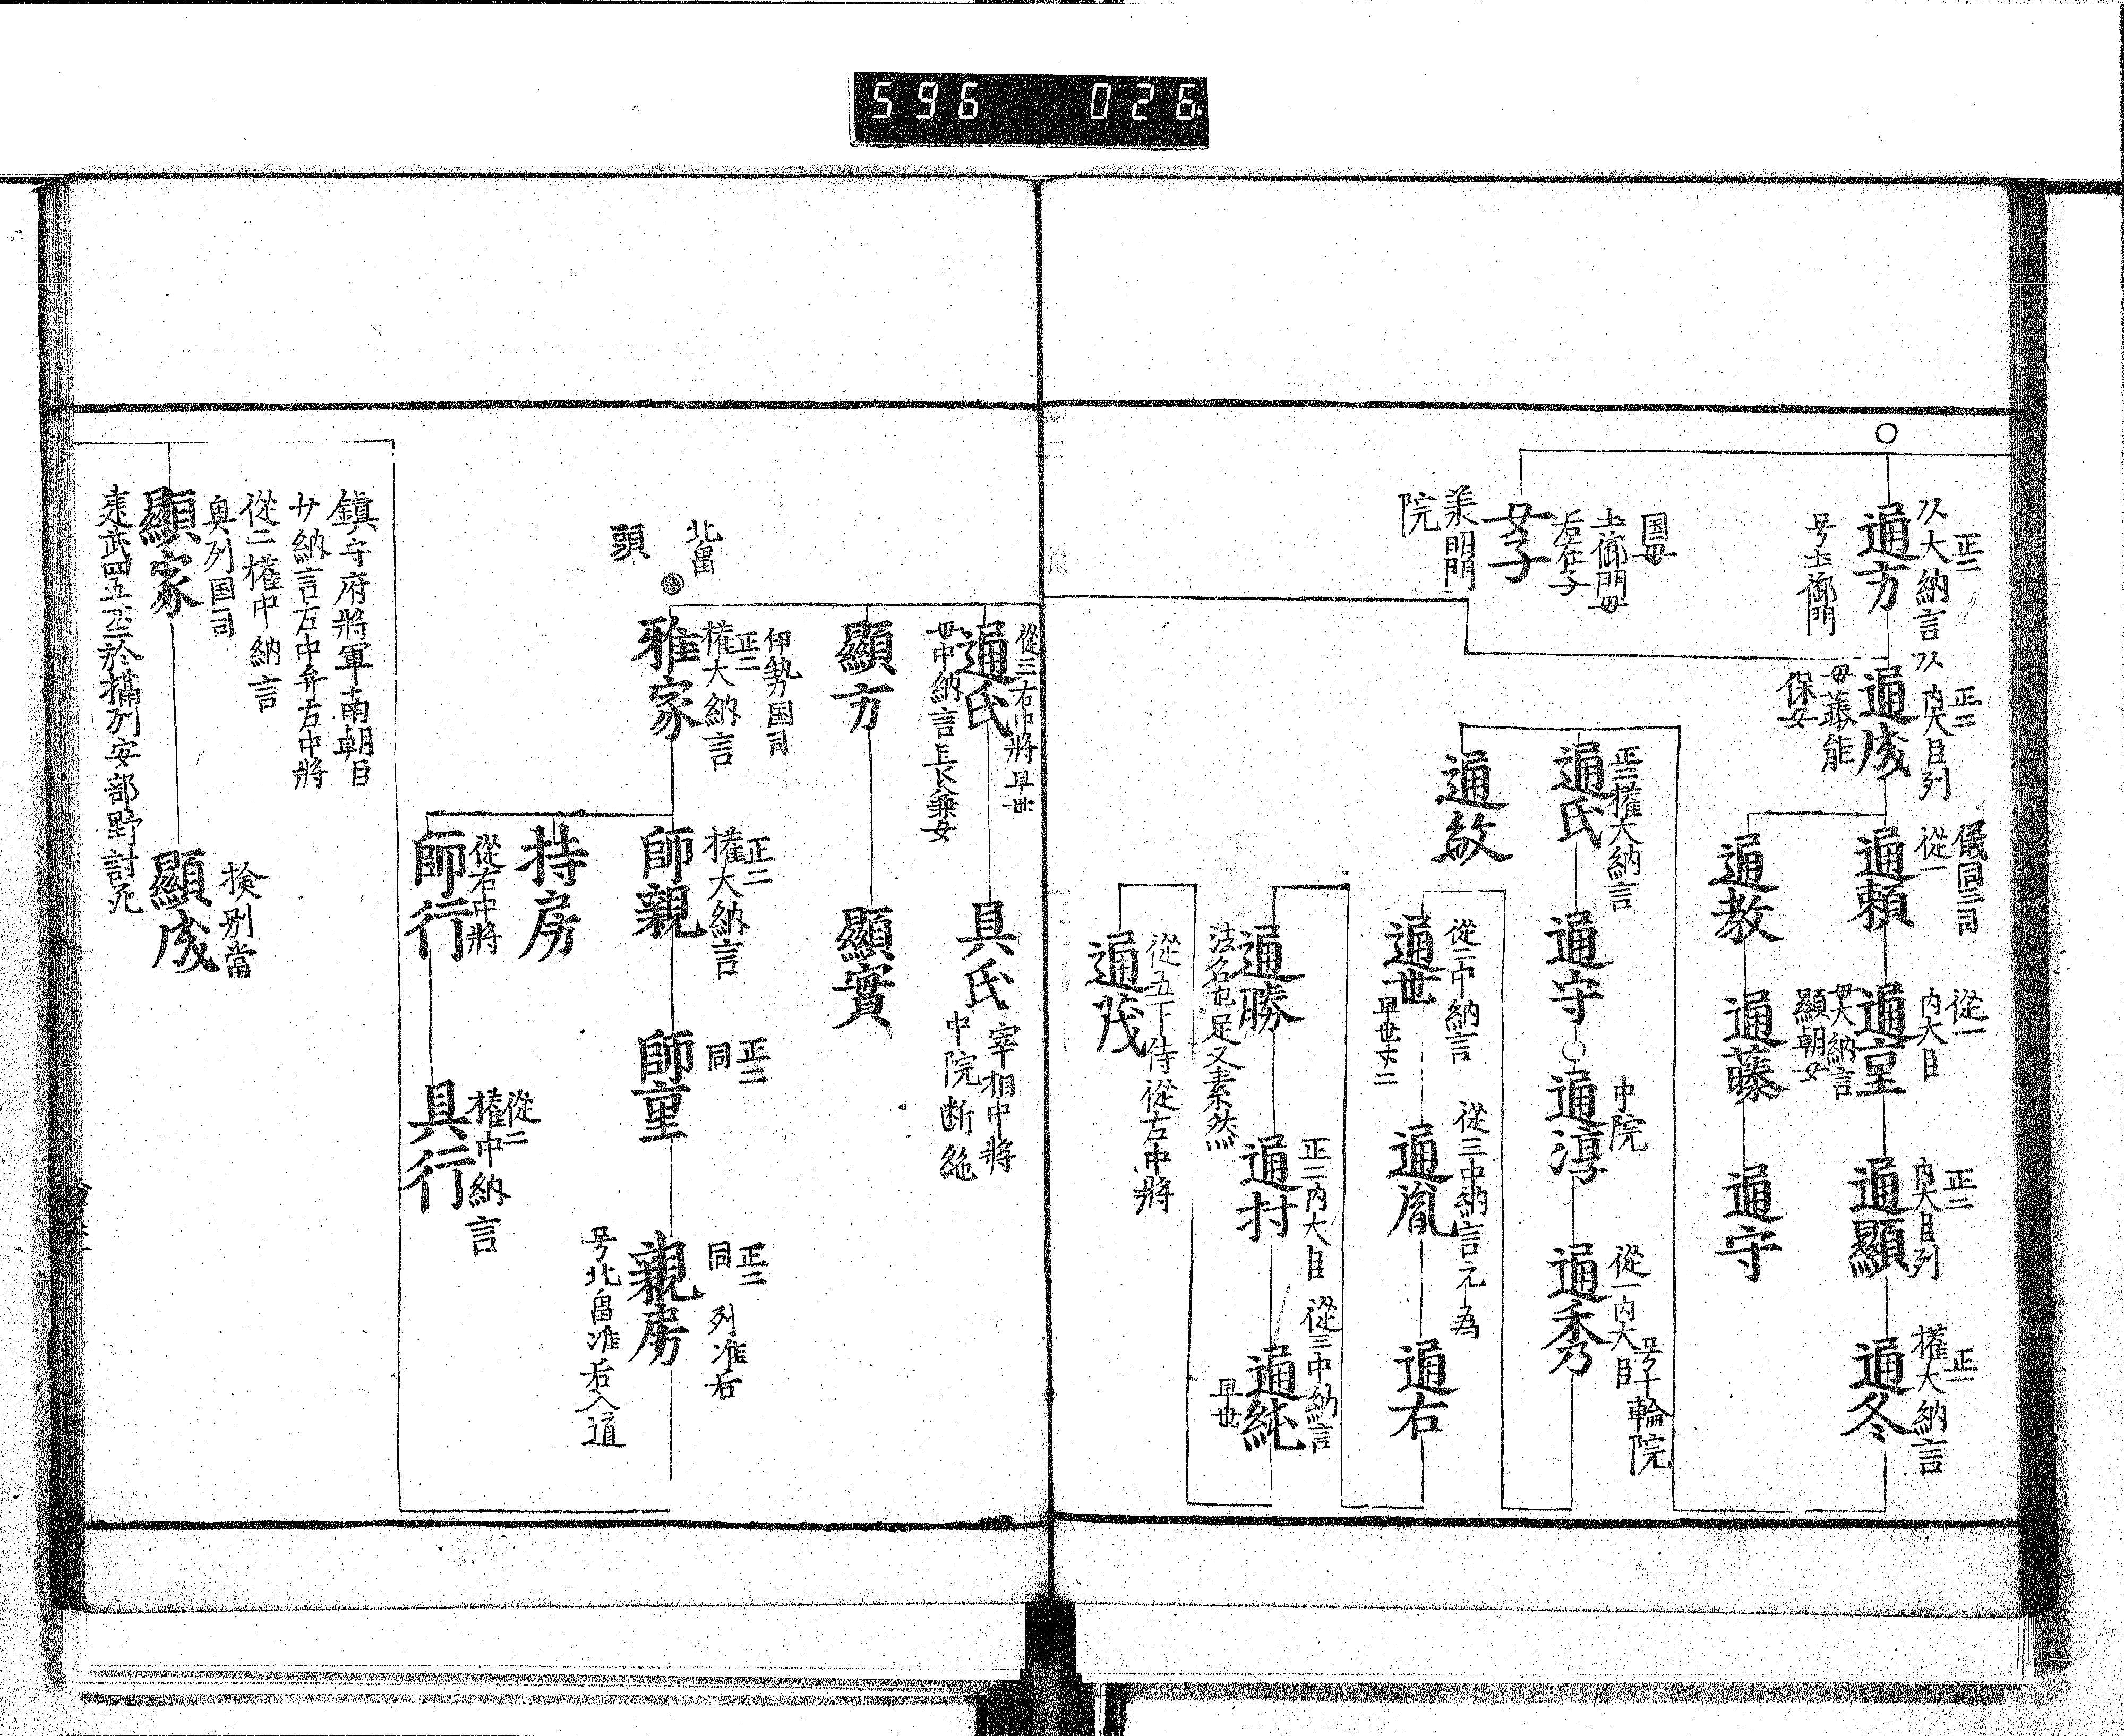 596 026
正二
大納言
通方
号土御門
国母
土御門母
后在子
女子
羕明門
院
正二
内大臣列
通成
母藤能
保女
儀同三司
從一
通頼
從一
内大臣
通重
母大納言
顯朝女
正二
内大臣列
通顯
正二
權大納言
通冬
通教
通藤
通守
正二權大納言
通氏
通守
中院
通淳
從一内大臣
号十輪院
通秀
通敏
從二中納言
通世
早世丈二
從三中納言元為
通胤
通右
通勝
法名也足又素然
正二内大臣
通村
從三中納言
通純
早世
從五下侍從左中將
通茂
從三右中將早世
通氏
母中納言長兼女
具氏
宰相中將
中院断絶
顯方
顯實
北畠
頭
伊勢国司
正二
權大納言
雅家
正二
權大納言
師親
正二
同
師重
正二
同
列准后
親房
号北畠准后入道
持房
從右中將
師行
從二
權中納言
具行
鎮守府將軍南朝臣
少納言左中弁右中將
從二權中納言
奥列国司
顯家
建武四五廿二於攝列安部野討死
検別當
顯成